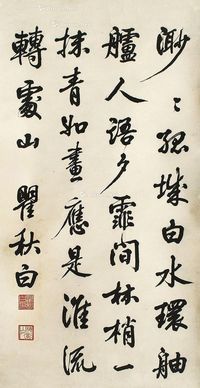 渺渺孤城白水環舳
艫人語夕霏間林梢一
抹青如畫應是淮流
轉處山 瞿秋白